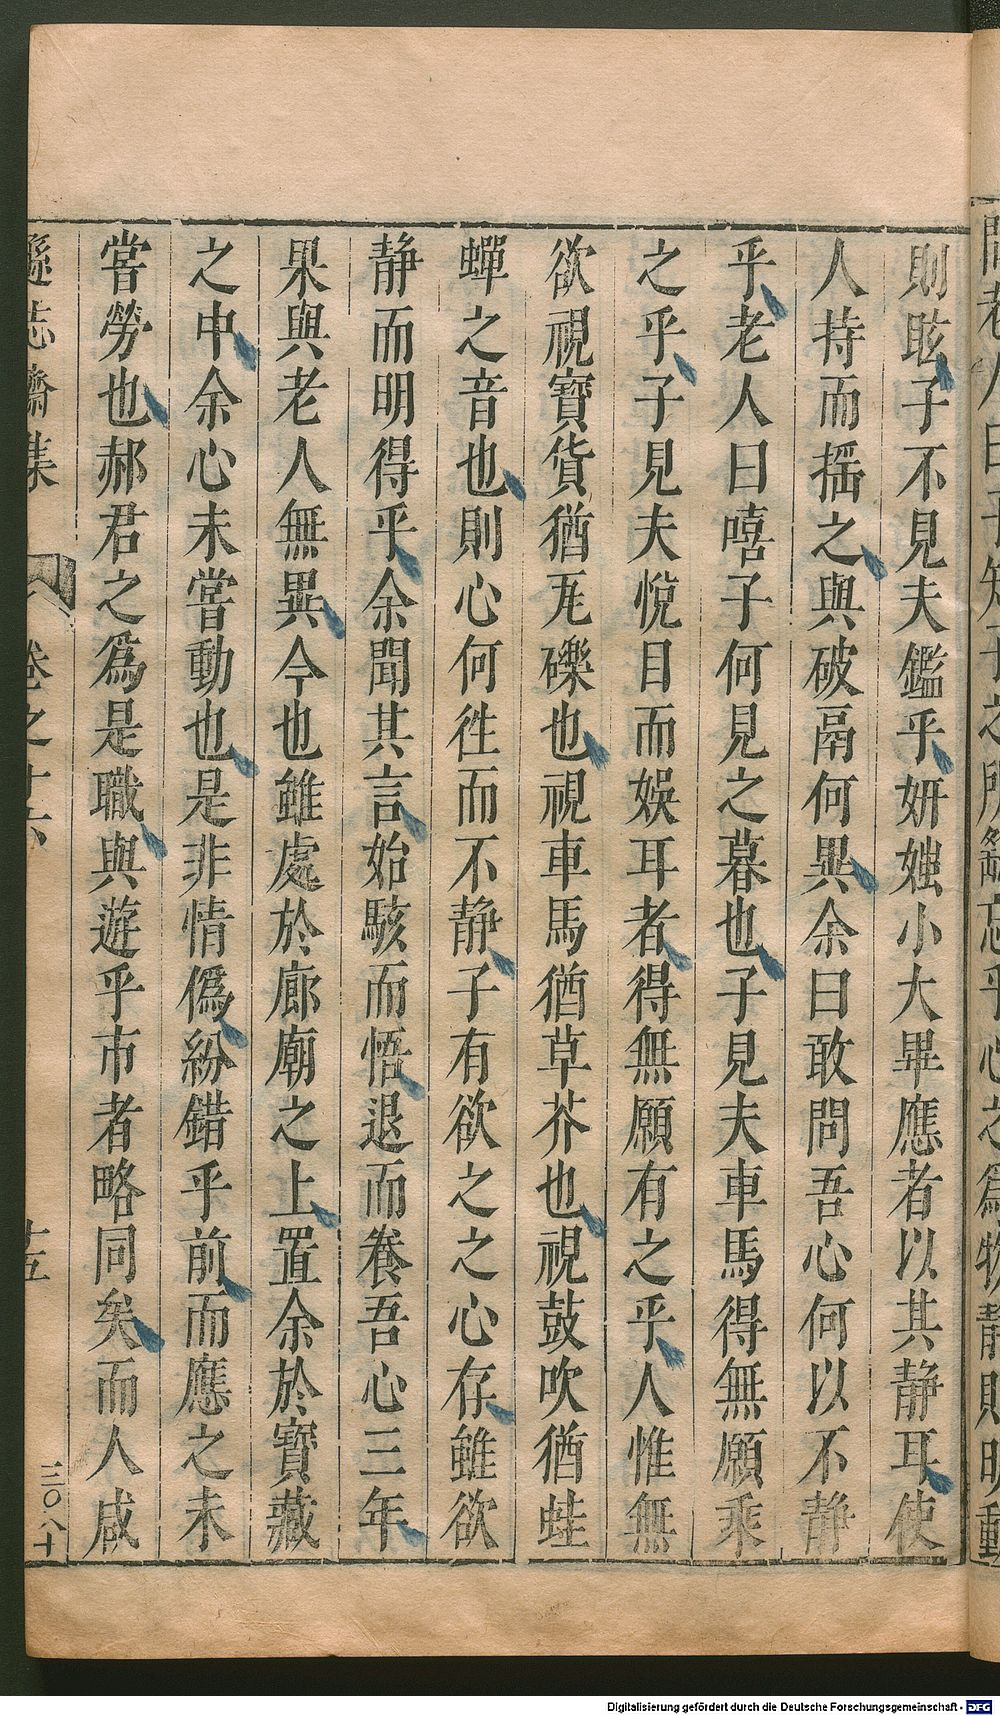 則眩子不見夫鑑乎妍媸小大畢應者以其靜耳使
人持而揺之與破鬲何異余曰敢問吾心何以不靜
乎老人曰嘻子何見之暮也子見夫車馬得無願乘
之乎子見夫悅目而娛耳者得無願有之乎人惟無
欲視寶貨猶瓦礫也視車馬猶草芥也視鼓吹猶蛙
蟬之音也則心何徃而不静子有欲之之心存雖欲
静而明得乎余聞其言始駭而悟退而養吾心三年
果與老人無異今也雖處於廊廟之上置余於寶藏
之中余心未嘗動也是非情僞紛錯乎前而應之未
嘗勞也郝君之爲是職與遊乎市者略同矣而人咸
遜志齋集
卷之十六
十五
三〇八十
Digitalisierung gefördert durch die Deutsche Forschungsgemeinschaft - DFG